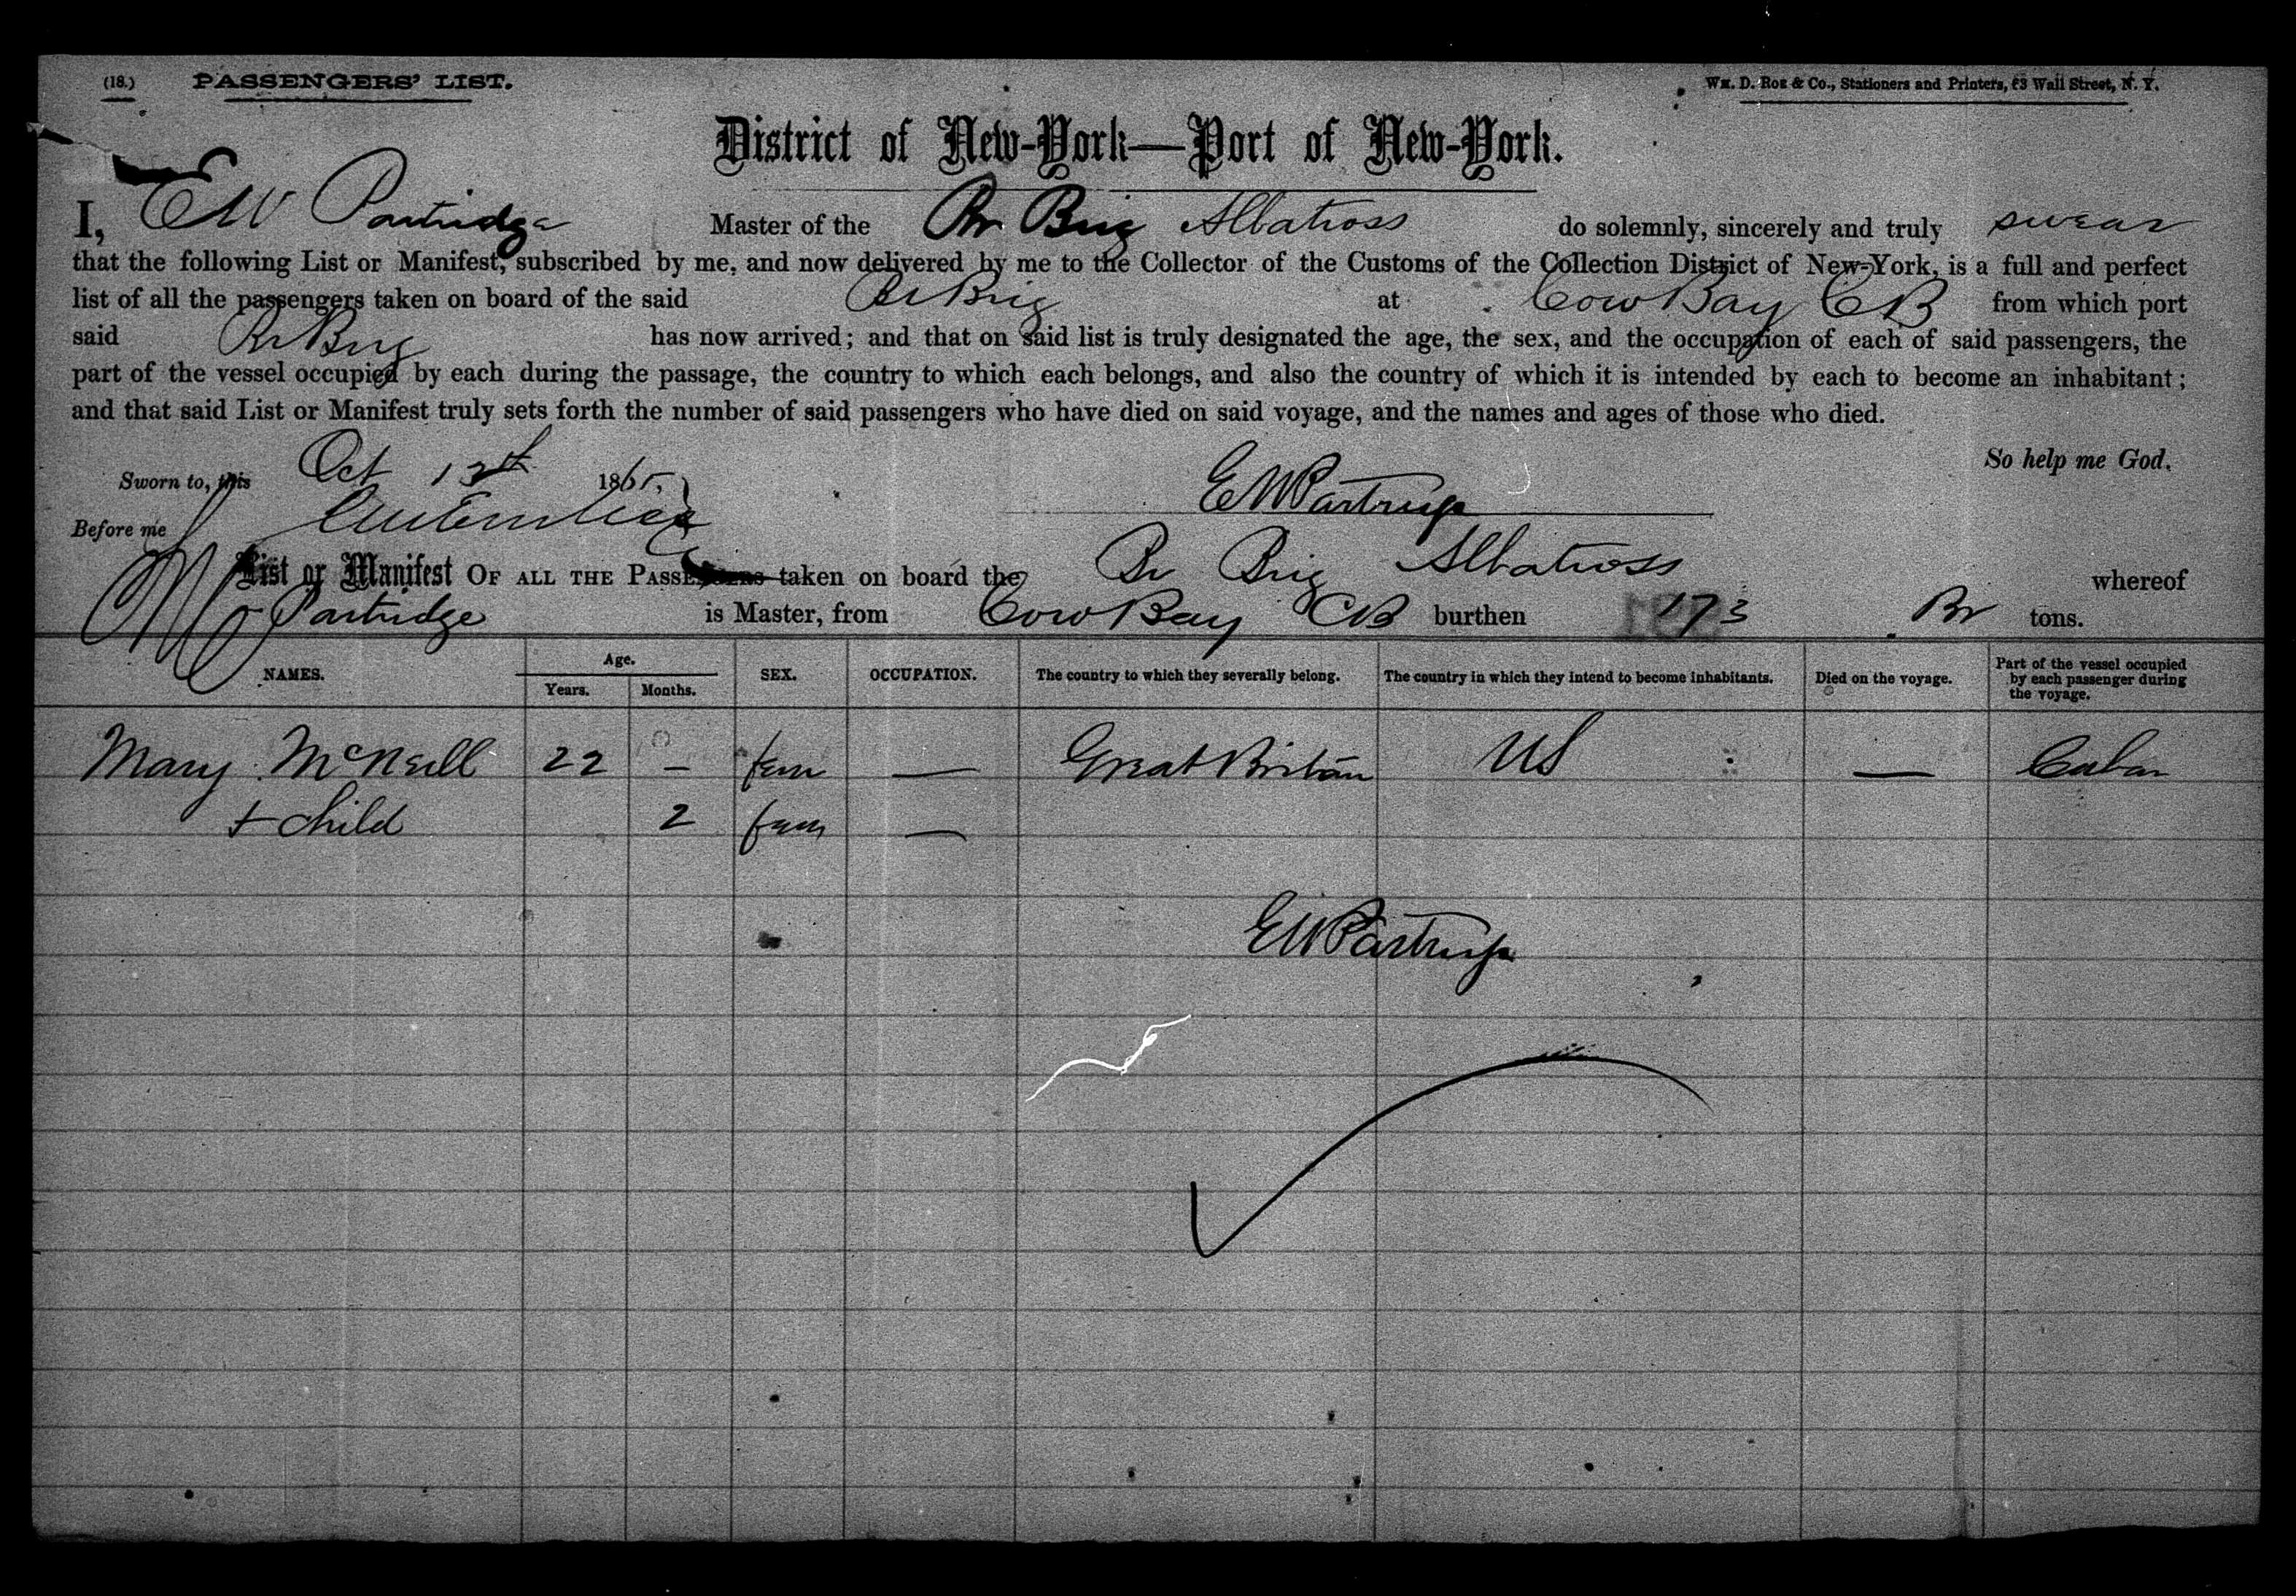 (18.) PASSENGERS' LIST. Wm. D. Roe & Co., Stationers and Printers, 53 Wall Street, N. Y.
District of New-York—Port of New-York.
I, E W Partridge Master of the Br Brig Albatross do solemnly, sincerely and truly swear
that the following List or Manifest, subscribed by me, and now delivered by me to the Collector of the Customs of the Collection District of New-York, is a full and perfect
list of all the passengers taken on board of the said Br Brig at Cow Bay CB from which port
said Br Brig has now arrived; and that on said list is truly designated the age, the sex, and the occupation of each of said passengers, the
part of the vessel occupied by each during the passage, the country to which each belongs, and also the country of which it is intended by each to become an inhabitant;
and that said List or Manifest truly sets forth the number of said passengers who have died on said voyage, and the names and ages of those who died.
So help me God.
Sworn to, this Oct 1865.
E W Partridge
Before me
List or Manifest OF ALL THE PASSENGERS taken on board the Br Brig Albatross whereof
Partridge is Master, from Cow Bay CB burthen 173 Br tons.
NAMES. Age. Years. Months. SEX. OCCUPATION. The country to which they severally belong. The country in which they intend to become inhabitants. Died on the voyage. Part of the vessel occupied by each passenger during the voyage.
Mary McNeill 22 – fem — Great Britain US — Cabin
+ child 2 fem —
E W Partridge